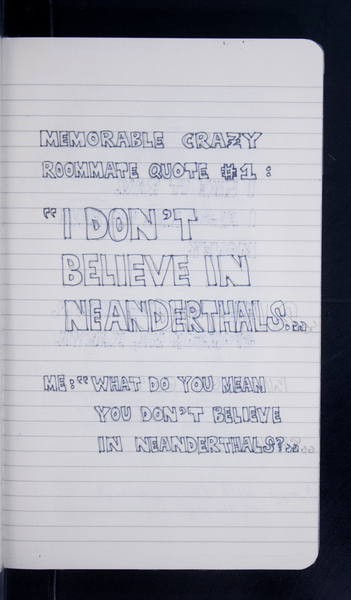 MEMORABLE CRAZY
ROOMMATE QUOTE #1:
"I DON'T
BELIEVE IN
NEANDERTHALS."
ME: "WHAT DO YOU MEAN
YOU DON'T BELIEVE
IN NEANDERTHALS?"